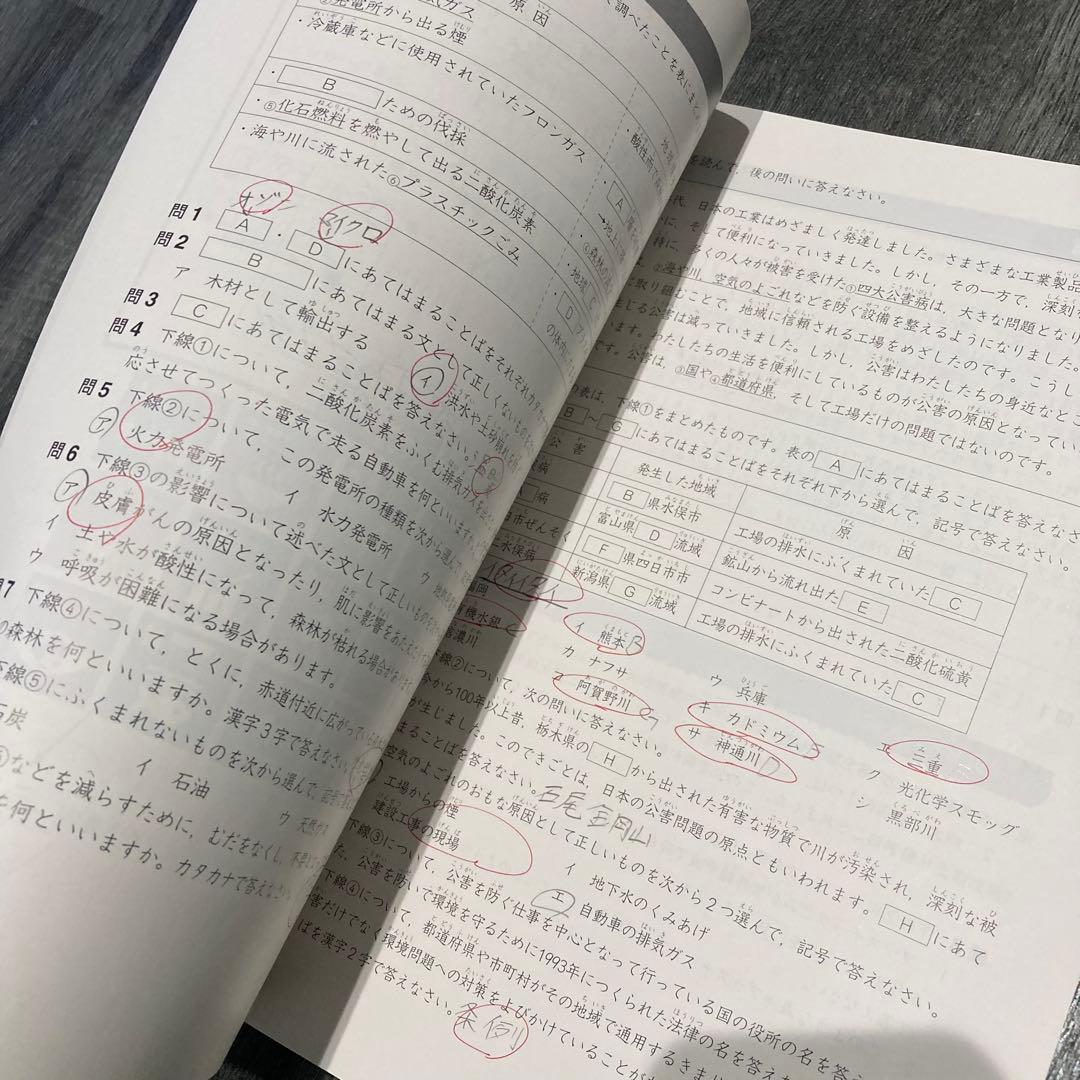 て調べたことを表にま
原因
②発電所から出る煙
・冷蔵庫などに使用されていたフロンガス
・ B ための伐採
・⑤化石燃料を燃やして出る二酸化炭素
・海や川に流された⑥プラスチックごみ
オゾン マイクロ
問1 A ・ D にあてはまることばをそれぞれカタカ
問2 B にあてはまる文として正しいものを
ア 木材として輸出する イ 洪水や土砂崩れを防
問3 C にあてはまることばを答えなさい。
問4 下線①について，二酸化炭素をふくむ排気ガスを出
応させてつくった電気で走る自動車を何といいますか
問5 下線②について，この発電所の種類を次から選んで
ア 火力発電所 イ 水力発電所 ウ
問6 下線③の影響について述べた文として正しいものを
ア 皮膚がんの原因となったり，肌に影響をあたえ
イ 土や水が酸性になって，森林が枯れる場合があ
ウ 呼吸が困難になる場合があります。
問7 下線④について，とくに，赤道付近に広がってい
の森林を何といいますか。漢字3字で答えなさい
下線⑤にふくまれないものを次から選んで，記号で
石炭 イ 石油 ウ 天然ガス
などを減らすために，むだをなくし，不用
を何といいますか。カタカナで答えなさい
を読んで，後の問いに答えなさい。
代，日本の工業はめざましく発達しました。さまざまな工業製品
に，そして便利になっていきました。しかし，その一方で，深刻な
特に，多くの人々が被害を受けた①四大公害病は，大きな問題となり
②海や川，空気のよごれなどを防ぐ設備を整えるようになりました。
に取り組むことで，地域に信頼される工場をめざしたのです。こうし
生じる公害は減っていきました。しかし，公害はわたしたちの身近なとこ
います。わたしたちの生活を便利にしているものが公害の原因となってい
です。公害は，③国や④都道府県，そして工場だけの問題ではないのです。
の表は，下線①をまとめたものです。表の A にあてはまることばを答えなさ
B ～ G にあてはまることばをそれぞれ下から選んで，記号で答えなさい。
公害 発生した地域 原因
病 B 県水俣市 工場の排水にふくまれていた C
病 富山県 D 流域 鉱山から流れ出た E
市ぜんそく F 県四日市市 コンビナートから出された二酸化硫黄
水俣病 新潟県 G 流域 工場の排水にふくまれていた C
岡 イ 熊本 B ウ 兵庫 エ 三重
機水銀 カ ナフサ キ カドミウム E ク 光化学スモッグ
濃川 阿賀野川 G サ 神通川 D シ 黒部川
下線②について，次の問いに答えなさい。
今から100年以上昔，栃木県の H から出された有害な物質で川が汚染され，深刻な被
が生じました。このできごとは，日本の公害問題の原点ともいわれます。 H にあて
まることばを答えなさい。
空気のよごれのおもな原因として正しいものを次から2つ選んで，記号で答えなさい。
工場からの煙 イ 地下水のくみあげ
建設工事の現場 エ 自動車の排気ガス
下線③について，公害を防ぐ仕事を中心となって行っている国の役所の名を答え
た，公害を防いで環境を守るために1993年につくられた法律の名を答え
下線④について，都道府県や市町村がその地域で通用するきまり
害だけでなく環境問題への対策をよびかけていることが
ばを漢字2字で答えなさい。
条例